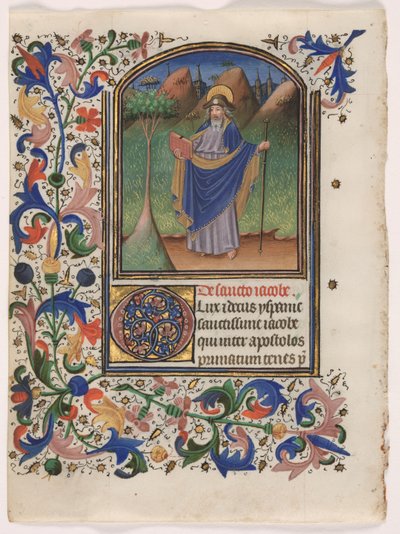 De sancto iacobo.
O Lux et decus yspanie
sanctissime iacobe
qui inter apostolos
primatum tenes p